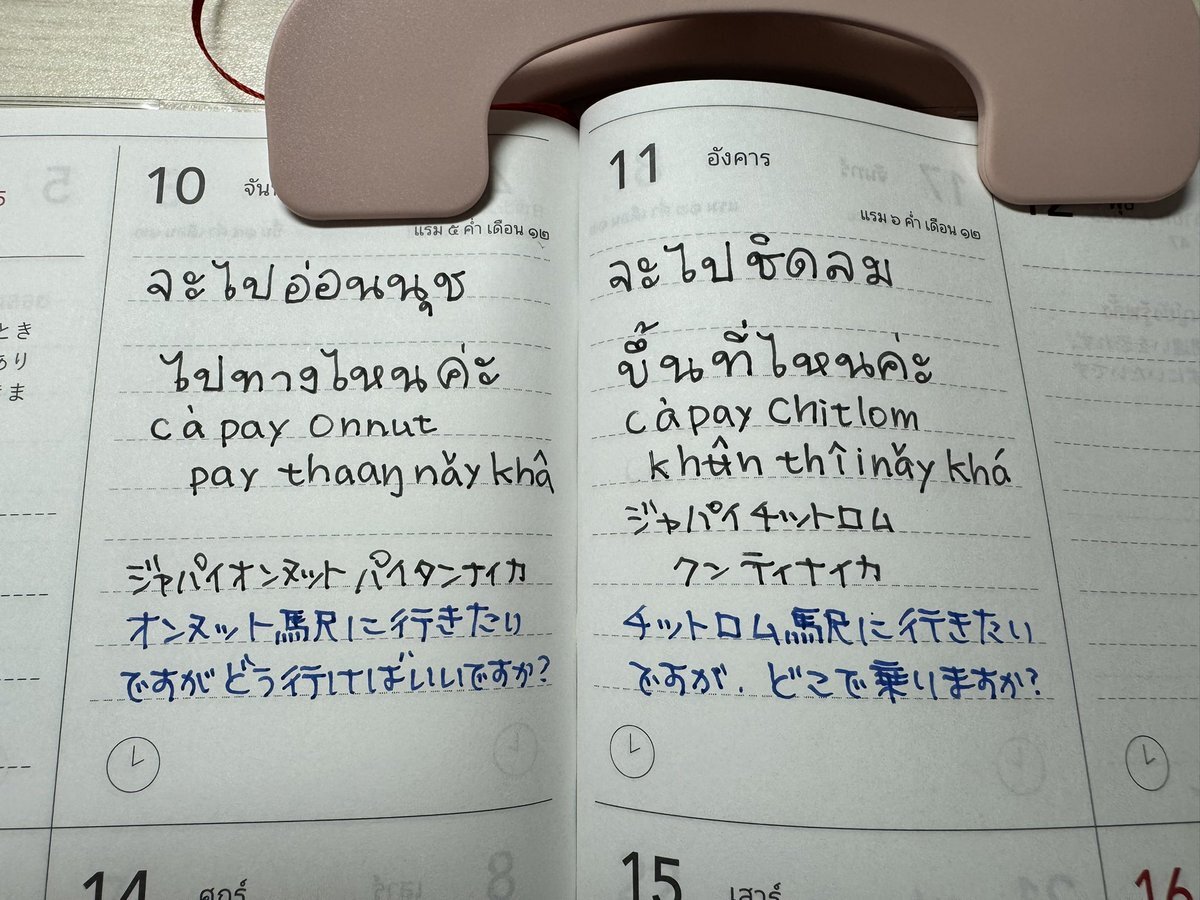 10 จัน
แรม ๕ ค่ำ เดือน ๑๒
จะไปอ่อนนุช
ไปทางไหนค่ะ
cà pay onnut
pay thaaŋ nǎy khâ
ジャパイオンヌット パイタンナイカ
オンヌット馬尺に行きたい
ですがどう行けばいいですか?
11 อังคาร
แรม ๖ ค่ำ เดือน ๑๒
จะไปชิดลม
ขึ้นที่ไหนค่ะ
cà pay Chitlom
khʉ̂n thîi nǎy khá
ジャパイチットロム
クンティナイカ
チットロム馬尺に行きたい
ですが、どこで乗りますか?
とき
あり
ま
14 ศุกร์
8
15 เสาร์
16
5
17 จันทร์